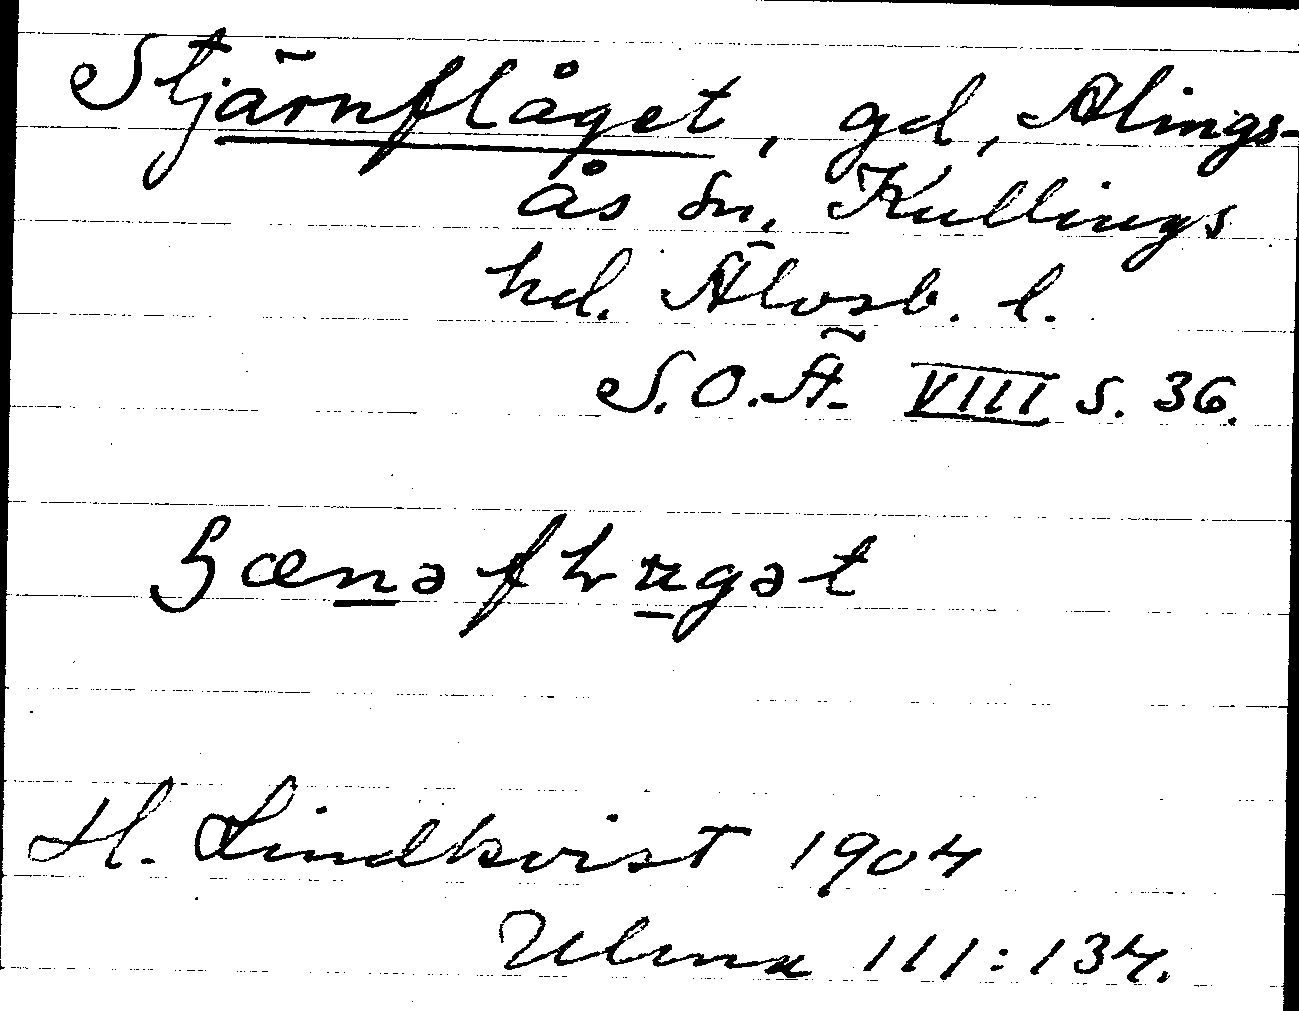 Stjärnflåget, gd, Alings-
ås sn, Kullings
hd. Älvsb. l.
S.O.Ä. VIII s. 36.
H. Lindkvist 1904
Ulma 111:134.